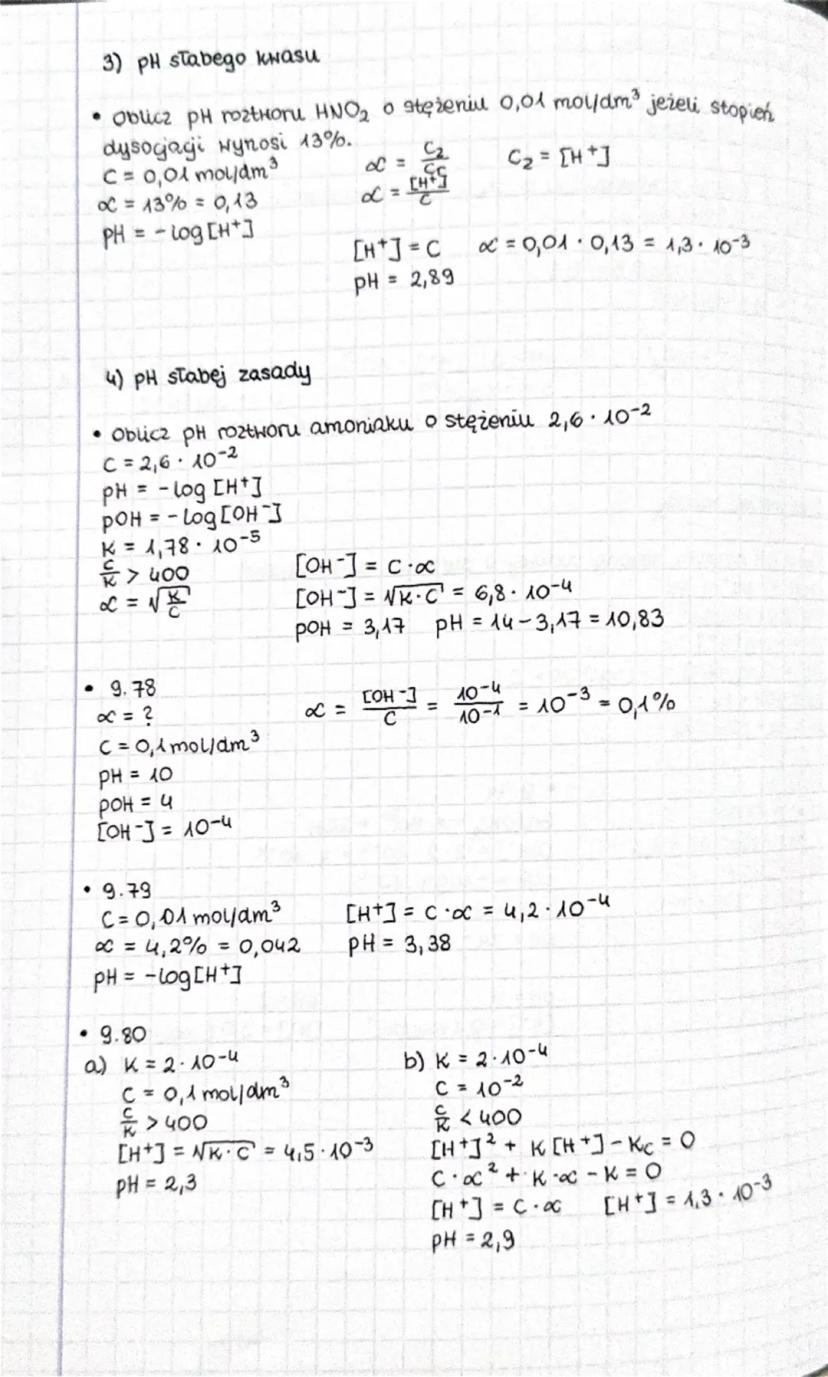 3) pH słabego kwasu
• Oblicz pH roztworu HNO₂ o stężeniu 0,01 mol/dm³ jeżeli stopień
dysocjacji wynosi 13%.
C = 0,01 mol/dm³
α = 13% = 0,13
pH = -log[H⁺]
α = C₂/Cc C₂ = [H⁺]
α = [H⁺]/C
[H⁺] = C α = 0,01 · 0,13 = 1,3 · 10⁻³
pH = 2,89
4) pH słabej zasady
• Oblicz pH roztworu amoniaku o stężeniu 2,6 · 10⁻²
C = 2,6 · 10⁻²
pH = -log [H⁺]
pOH = -log[OH⁻]
K = 1,78 · 10⁻⁵
C/K > 400
α = √(K/C)
[OH⁻] = C · α
[OH⁻] = √(K · C) = 6,8 · 10⁻⁴
pOH = 3,17 pH = 14 - 3,17 = 10,83
• 9.78
α = ?
C = 0,1 mol/dm³
pH = 10
pOH = 4
[OH⁻] = 10⁻⁴
α = [OH⁻]/C = 10⁻⁴/10⁻¹ = 10⁻³ = 0,1%
• 9.79
C = 0,01 mol/dm³
α = 4,2% = 0,042
pH = -log[H⁺]
[H⁺] = C · α = 4,2 · 10⁻⁴
pH = 3,38
• 9.80
a) K = 2 · 10⁻⁴
C = 0,1 mol/dm³
C/K > 400
[H⁺] = √(K · C) = 4,5 · 10⁻³
pH = 2,3
b) K = 2 · 10⁻⁴
C = 10⁻²
C/K < 400
[H⁺]² + K[H⁺] - Kc = 0
C · α² + K · α - K = 0
[H⁺] = C · α [H⁺] = 1,3 · 10⁻³
pH = 2,9